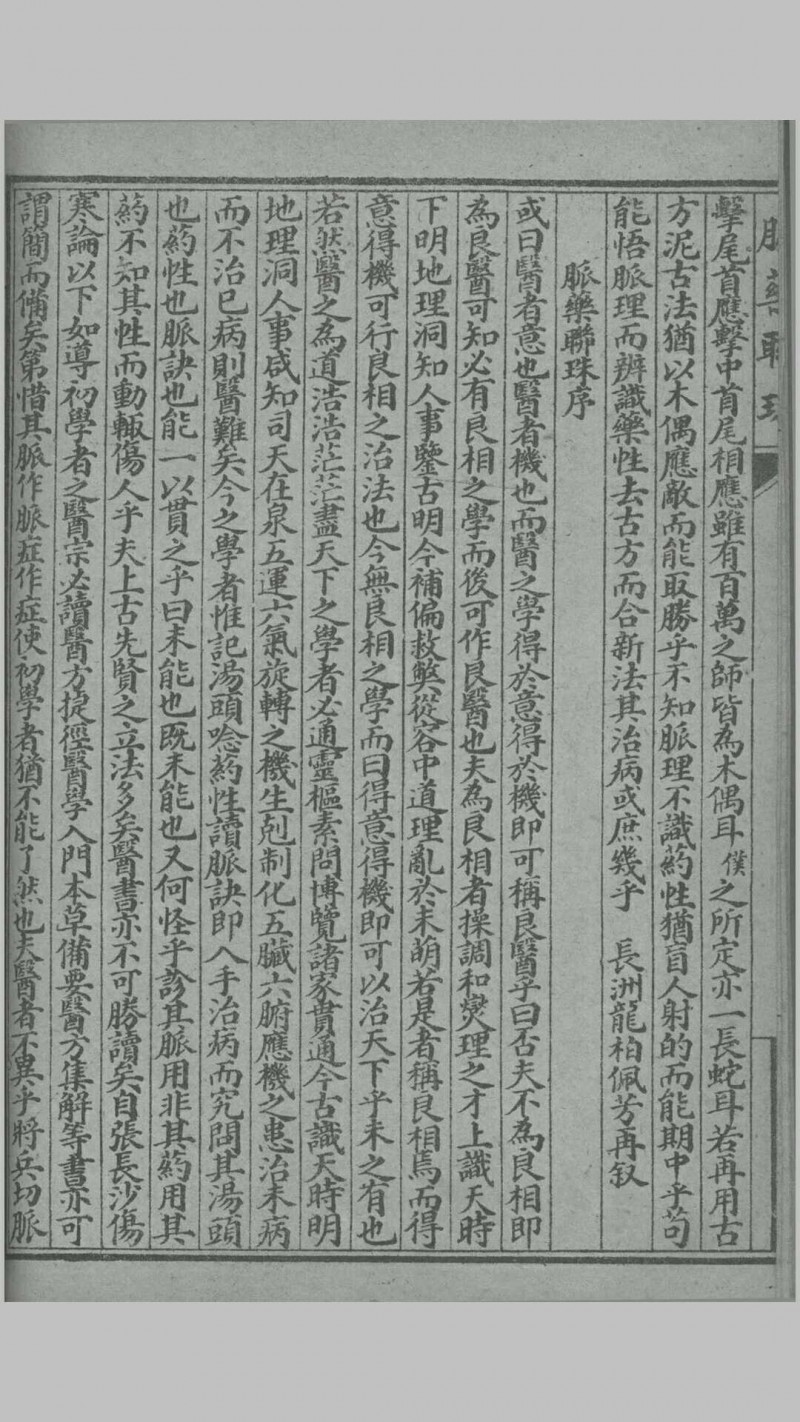 脈藥聯珠
擊尾首應擊中首尾相應雖有百萬之師皆為木偶耳僕之所定亦一長蛇耳若再用古
方泥古法猶以木偶應敵而能取勝乎不知脈理不識葯性猶盲人射的而能期中乎苟
能悟脈理而辨識藥性去古方而合新法其治病或庶幾乎　長洲龍柏佩芳再敘
脈藥聯珠序
或曰醫者意也醫者機也而醫之學得於意得於機即可稱良醫乎曰否夫不為良相即
為良醫可知必有良相之學而後可作良醫也夫為良相者操調和爕理之才上識天時
下明地理洞知人事鑒古明今補偏救獘從容中道理亂於未萌若是者稱良相焉而得
意得機可行良相之治法也今無良相之學而曰得意得機即可以治天下乎未之有也
若然醫之為道浩浩茫茫盡天下之學者必通靈樞素問博覽諸家貫通今古識天時明
地理洞人事咸知司天在泉五運六氣旋轉之機生剋制化五臟六腑應機之患治未病
而不治已病則醫難矣今之學者惟記湯頭唸葯性讀脈訣即入手治病而究問其湯頭
也葯性也脈訣也能一以貫之乎曰未能也既未能也又何怪乎診其脈用非其葯用其
葯不知其性而動輙傷人乎夫上古先賢之立法多矣醫書亦不可勝讀矣自張長沙傷
寒論以下如導初學者之醫宗必讀醫方捷徑醫學入門本草備要醫方集解等書亦可
謂簡而備矣第惜其脈作脈症作症使初學者猶不能了然也夫醫者不異乎將兵切脈